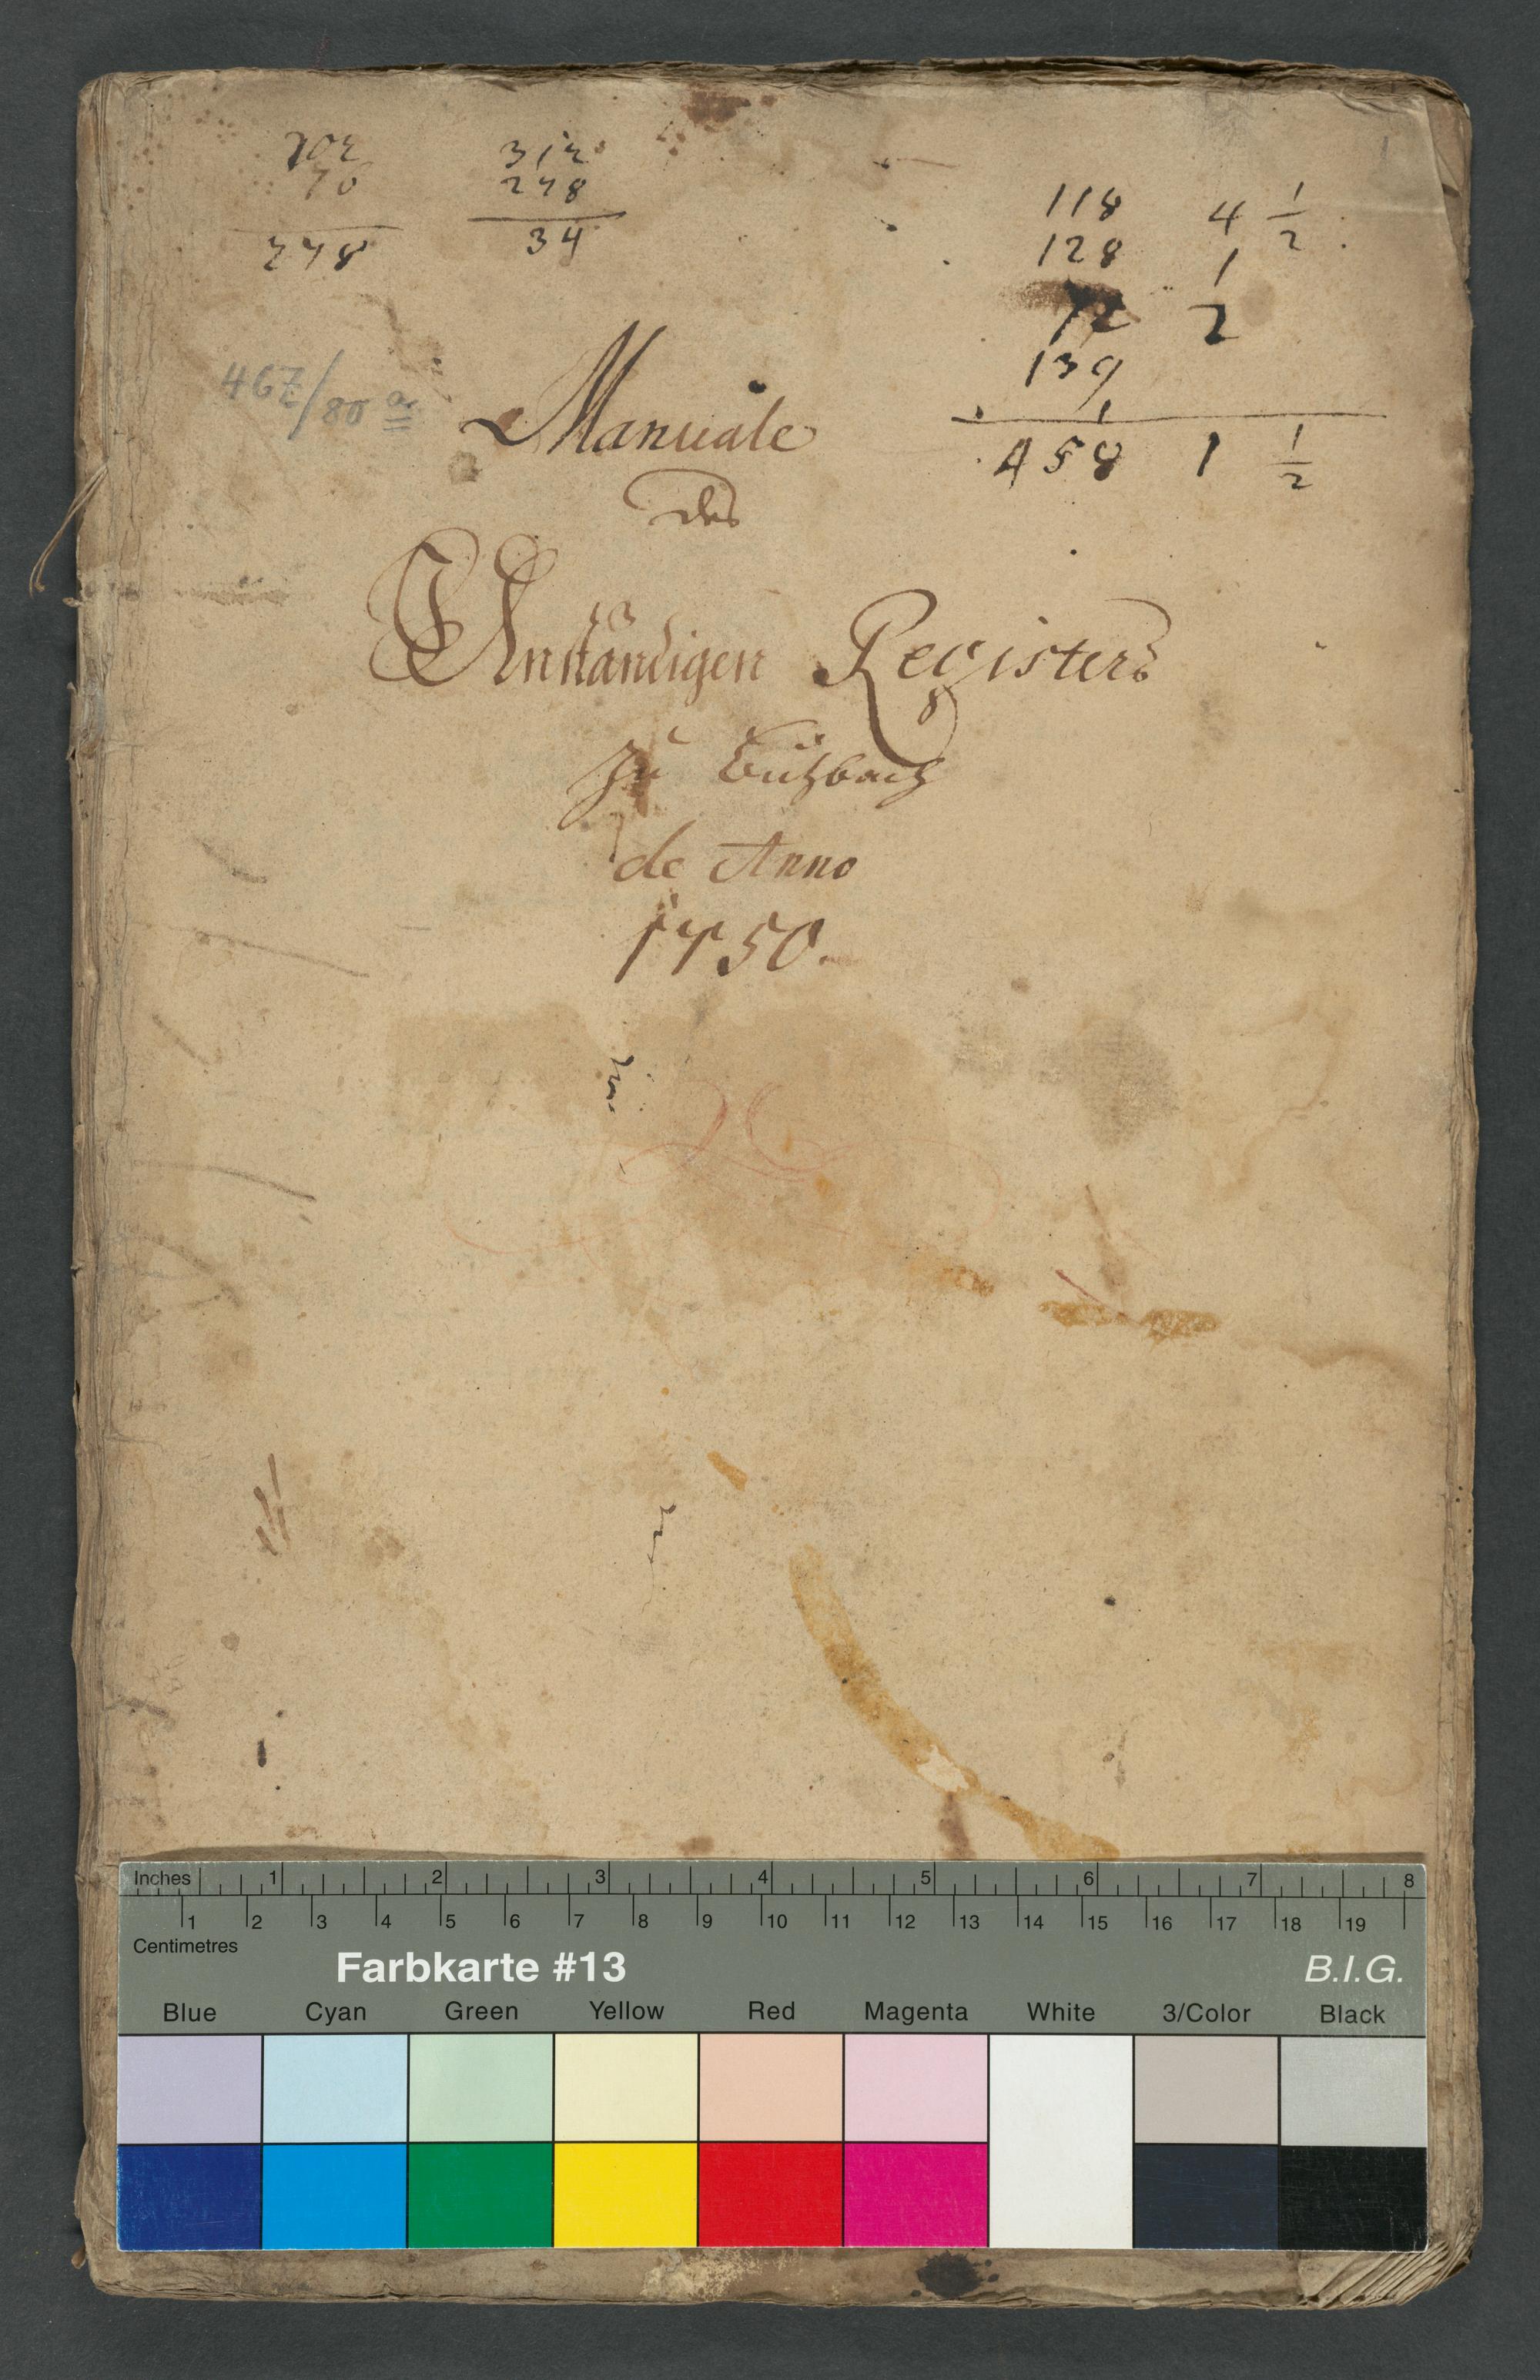 202 312
76 278
278 34
118 4 1/2
128 1
72 2
139
1
458 1 1/2
Manuale
des
Unständigen Registers
Zu Butzbach
de Anno
1750.
Inches 1 2 3 4 5 6 7 8
1 2 3 4 5 6 7 8 9 10 11 12 13 14 15 16 17 18 19
Centimetres
Farbkarte #13 B.I.G.
Blue Cyan Green Yellow Red Magenta White 3/Color Black